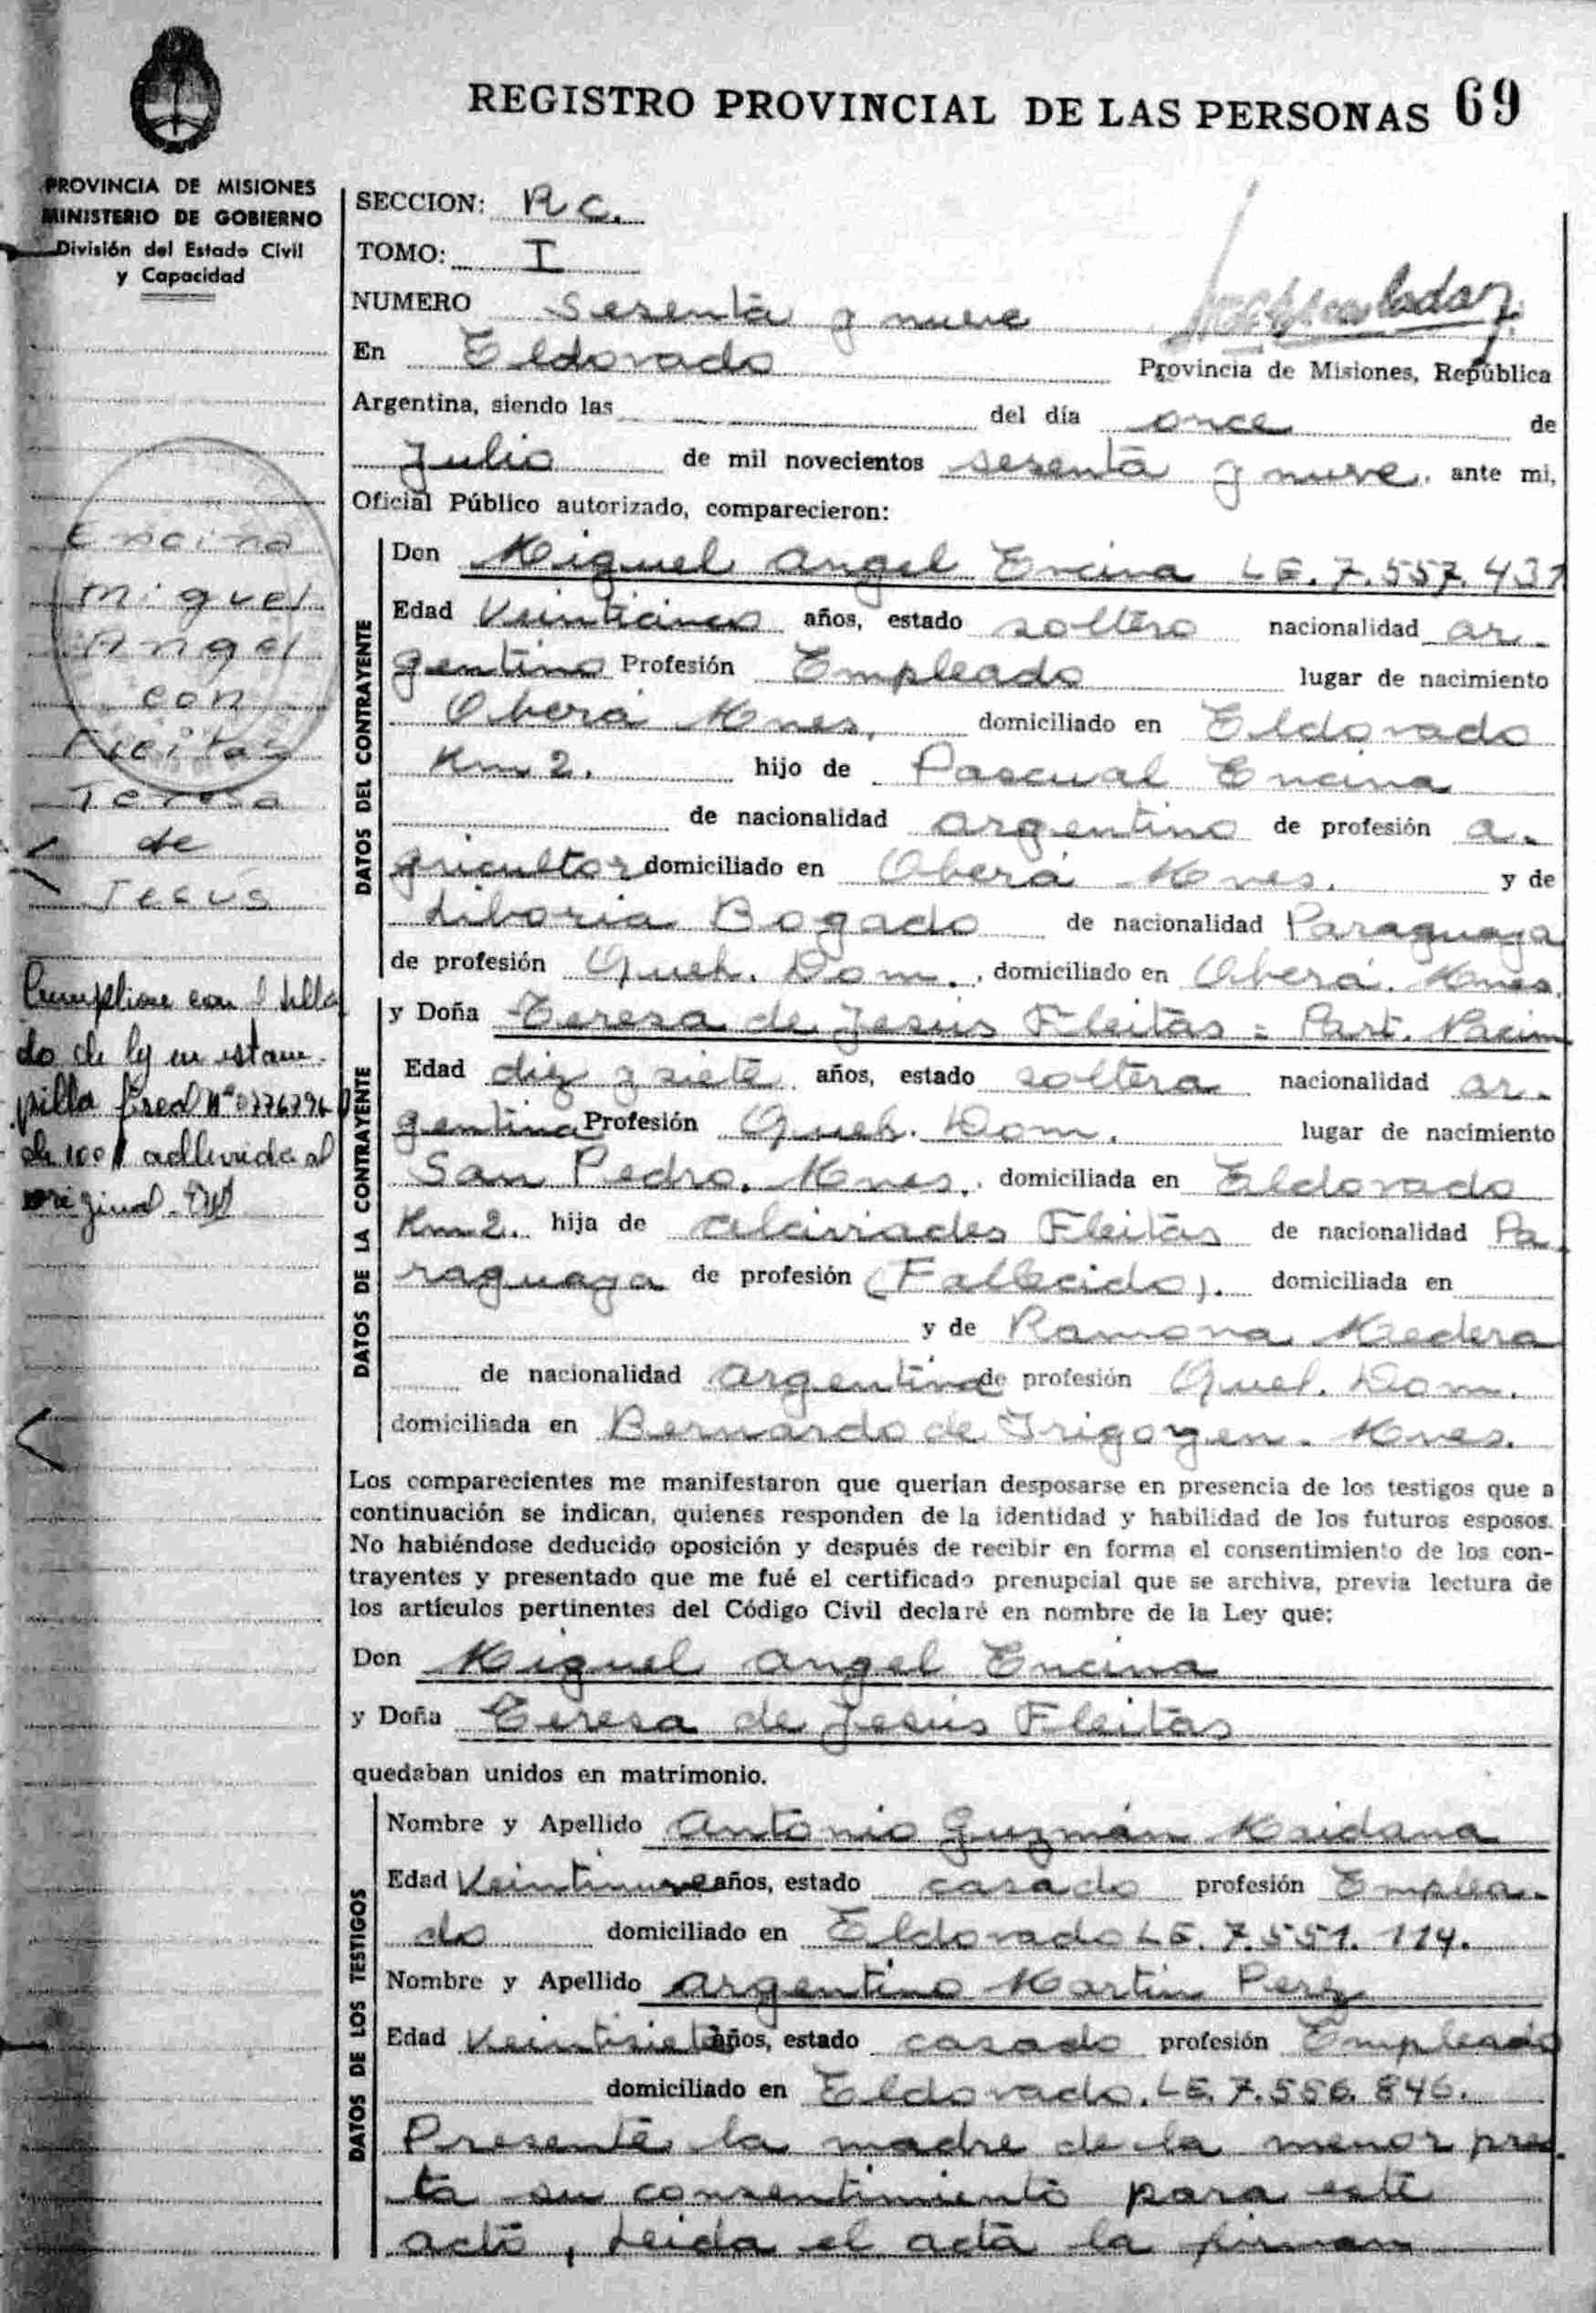 REGISTRO PROVINCIAL DE LAS PERSONAS 69
PROVINCIA DE MISIONES
MINISTERIO DE GOBIERNO
División del Estado Civil
y Capacidad
SECCION: R C.
TOMO: I
NUMERO Sesenta y nueve
En Eldorado Provincia de Misiones, República
Argentina, siendo las del día once de
Julio de mil novecientos sesenta y nueve. ante mi,
Oficial Público autorizado, comparecieron:
Encina
Miguel
Angel
con
Fleitas
Teresa
de
Jesús
DATOS DEL CONTRAYENTE
Don Miguel Angel Encina LE. 7.557.431
Edad Veinticinco años, estado soltero nacionalidad ar-
gentino Profesión Empleado lugar de nacimiento
Oberá Mnes, domiciliado en Eldorado
Km 2. hijo de Pascual Encina
de nacionalidad argentino de profesión a-
gricultor domiciliado en Oberá Mnes. y de
Liboria Bogado de nacionalidad Paraguaya
de profesión Queh. Dom., domiciliado en Oberá. Mnes.
Cumplióse con el sella
do de ley en estam-
pilla fiscal Nº
de 100 adherida al
original.
DATOS DE LA CONTRAYENTE
y Doña Teresa de Jesús Fleitas = Part. Nacim
Edad diez y siete años, estado soltera nacionalidad ar-
gentina Profesión Queh. Dom. lugar de nacimiento
San Pedro. Mnes. domiciliada en Eldorado
Km 2. hija de Alciviades Fleitas de nacionalidad Pa
raguaya de profesión (Fallecido). domiciliada en
y de Ramona Medera
de nacionalidad argentina de profesión Queh. Dom.
domiciliada en Bernardo de Irigoyen. Mnes.
Los comparecientes me manifestaron que querían desposarse en presencia de los testigos que a
continuación se indican, quienes responden de la identidad y habilidad de los futuros esposos.
No habiéndose deducido oposición y después de recibir en forma el consentimiento de los con-
trayentes y presentado que me fué el certificado prenupcial que se archiva, previa lectura de
los artículos pertinentes del Código Civil declaré en nombre de la Ley que:
Don Miguel Angel Encina
y Doña Teresa de Jesús Fleitas
quedaban unidos en matrimonio.
DATOS DE LOS TESTIGOS
Nombre y Apellido Antonio Guzmán Maidana
Edad Veintinueve años, estado casado profesión Emplea-
do domiciliado en Eldorado LE. 7.551.114.
Nombre y Apellido Argentino Martin Perez
Edad Veintisiete años, estado casado profesión Empleado
domiciliado en Eldorado. LE. 7.556.846.
Presente la madre de la menor pres-
ta su consentimiento para este
acto, Leida el acta la firman